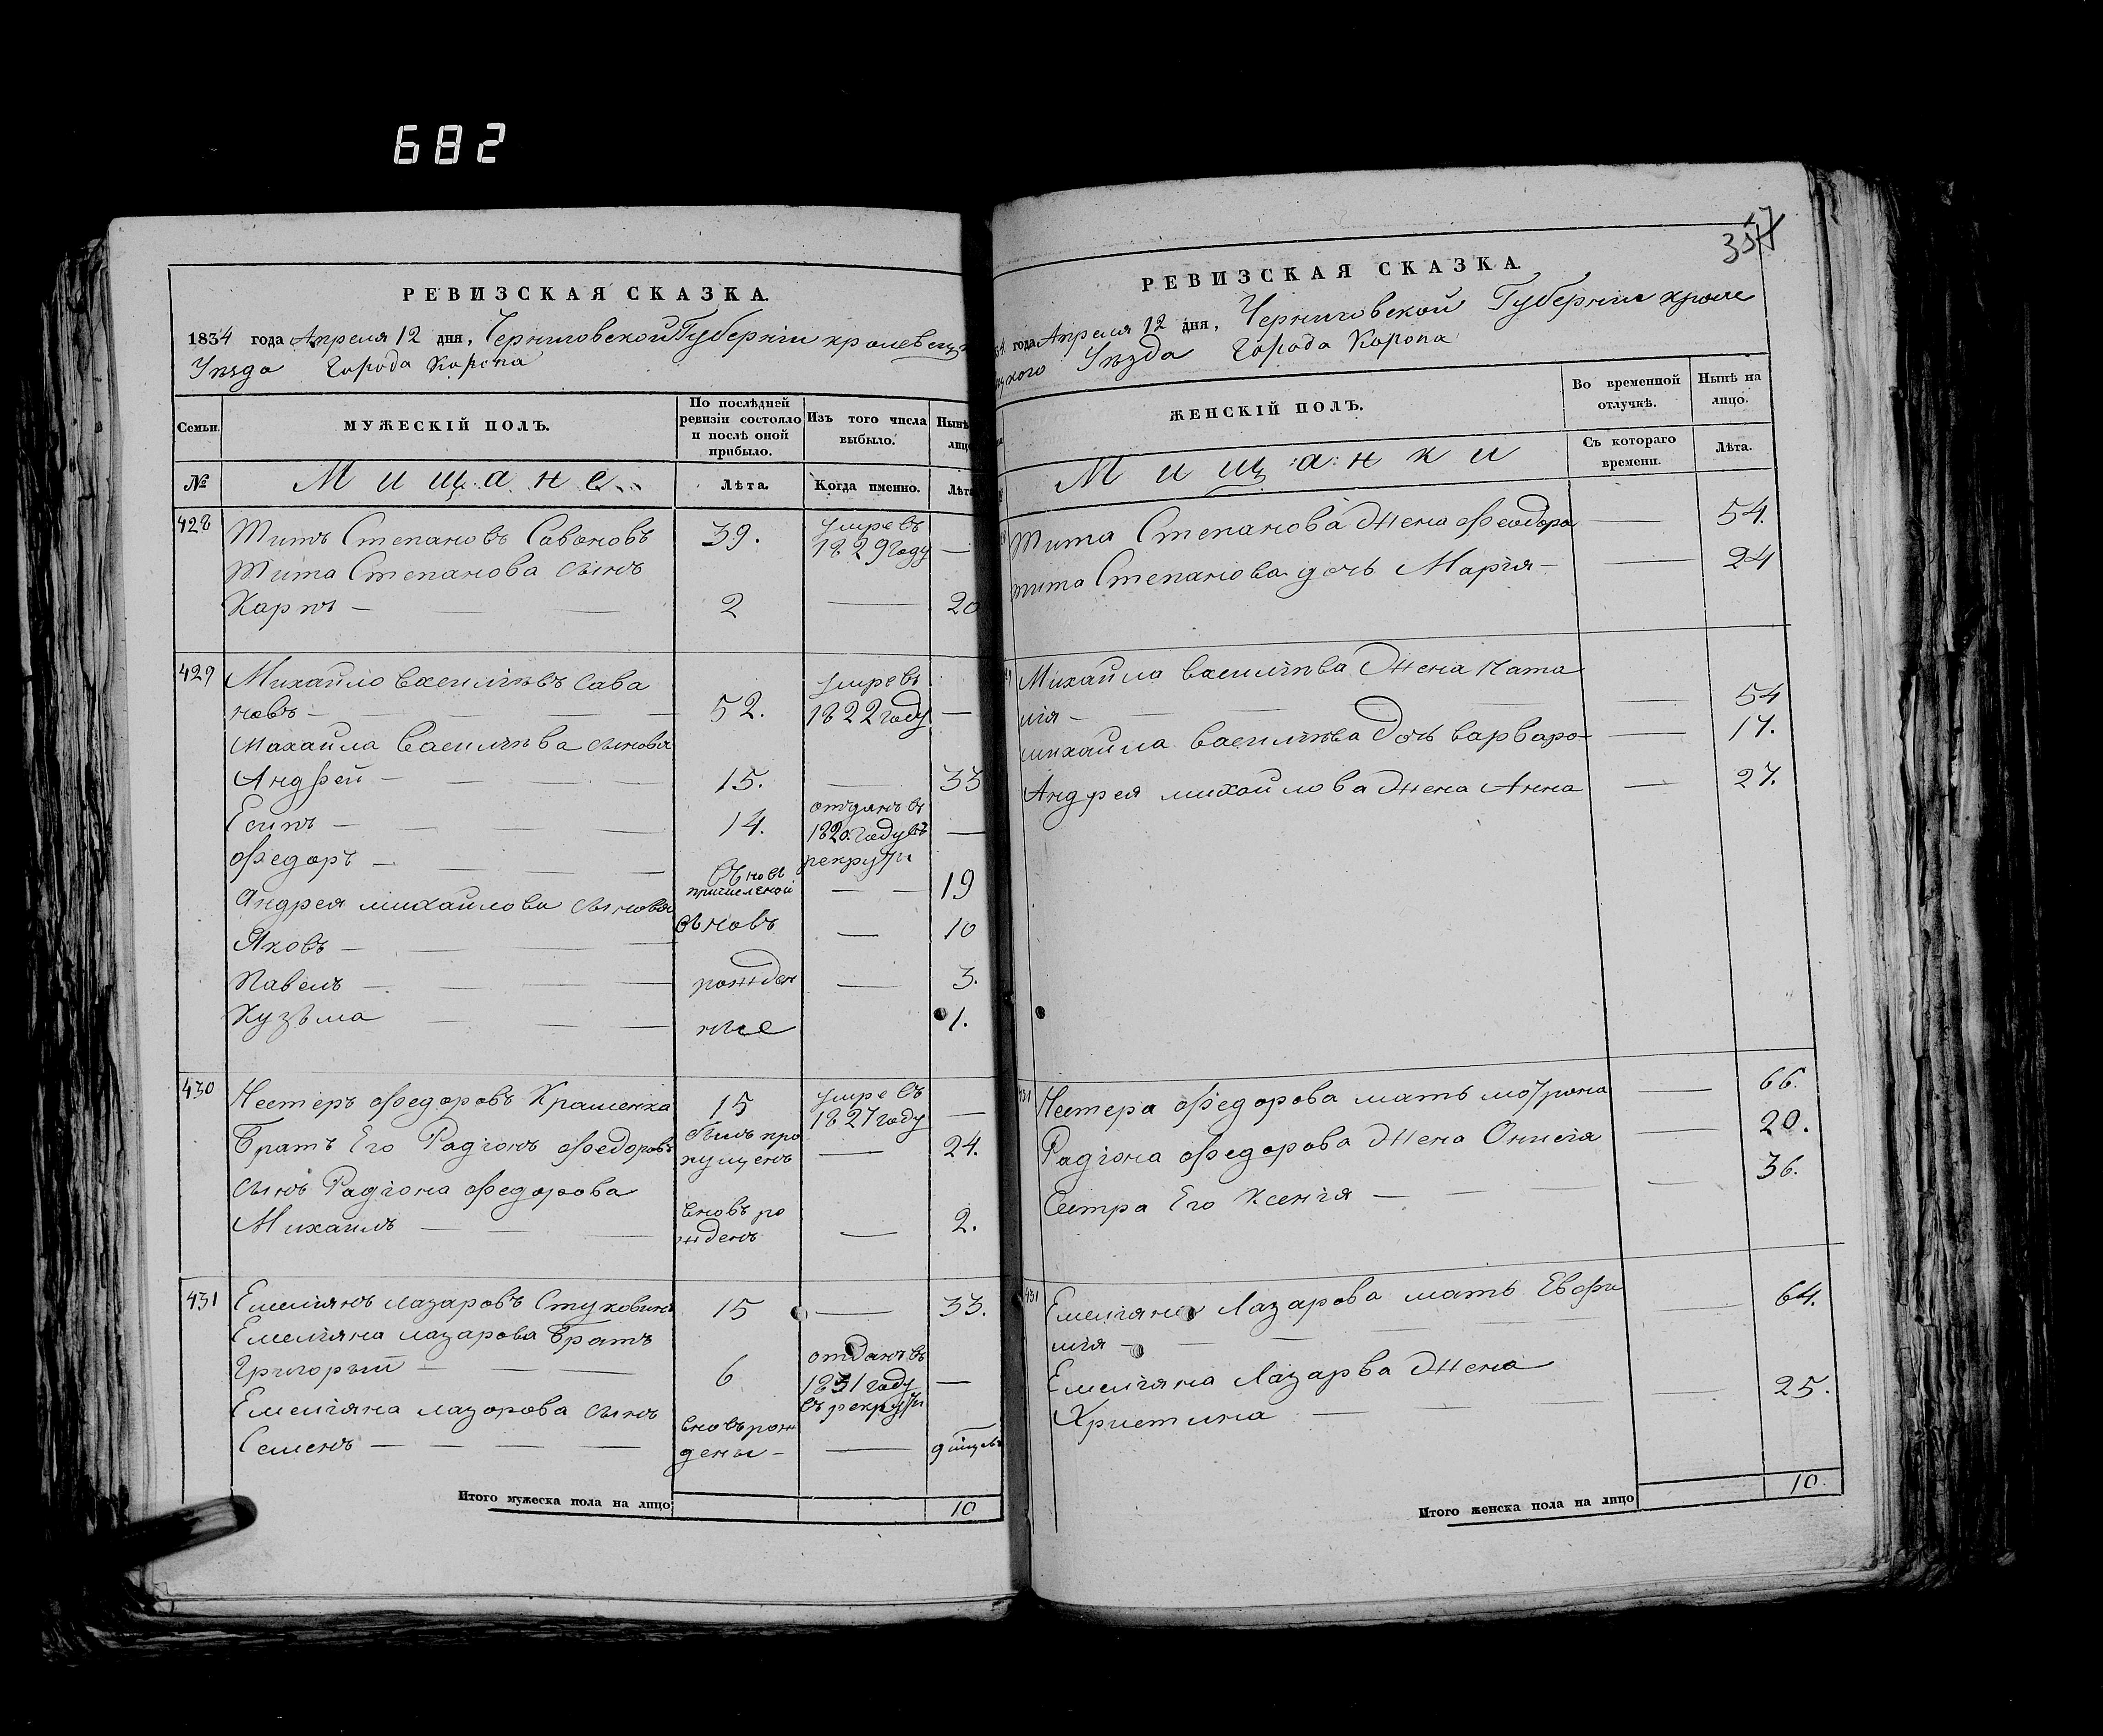 682
РЕВИЗСКАЯ СКАЗКА.
1834 года Апреля 12 дня, Черниговской Губерніи кролевец
Уѣзда Города Коропа
Семьи.
МУЖЕСКІЙ ПОЛЪ.
По послѣдней ревизіи состояло и послѣ оной прибыло.
Изъ того числа выбыло.
Нынѣ
лиц
№
Мищане
Лѣта.
Когда именно.
Лѣт
428 Титъ Степановъ Савоновъ 39. умре въ 1829 году —
Тита Степанова сынъ
Карпъ — 2 — 20
429 Михайло василѣвъ сава
новъ — 52. умре въ 1822 году —
Михайла василѣва сыновя
Андрей — 15. — 33
Есипъ — 14. отданъ въ 1820. году въ рекруты —
Федоръ — вновъ причисленой — 19
Андрея михайлова сыновя
Яковъ — вновъ — 10
Павелъ — рожден — 3.
Кузьма — ные 1.
430 Нестеръ Федоровъ Крашенка 15 умре въ 1827 году —
Братъ Его Радіонъ Федоровъ былъ пропущенъ — 24.
сынъ Радіона Федорова
Михаилъ — вновъ рожденъ — 2.
431 Емеліянъ лазаровъ Стуковинъ 15 — 33.
Емеліяна лазарова Братъ
Григорый — 6 отданъ въ 1831 году въ рекруты —
Емеліяна лазорова сынъ
Семенъ — вновърождены — —
Итого мужеска пола на лицо 10
357
РЕВИЗСКАЯ СКАЗКА.
34 года Апреля 12 дня, Черниговской Губерніи кроле
вецкого Уѣзда Города Коропа
ЖЕНСКІЙ ПОЛЪ.
Во временной отлучкѣ.
Нынѣ на лицо.
Мищанки
Съ котораго времени.
Лѣта.
Тита Степанова жена Феодора — 54.
тита Степанова дочь Марія — — 24
Михайла василѣва жена Ната
лія — — 54
михайла василѣва дочь варвара — 17.
Андрея михайлова жена Анна — 27.
431 Нестера Федорова мать мотрона — 66.
Радіона Федорова жена Онисія — 20.
Сестра Его Ксенія — — 36.
431 Емеліяна Лазарова мать Евфи
мія — — 64.
Емеліяна Лазарва жена
Христина — — 25.
Итого женска пола на лицо 10.